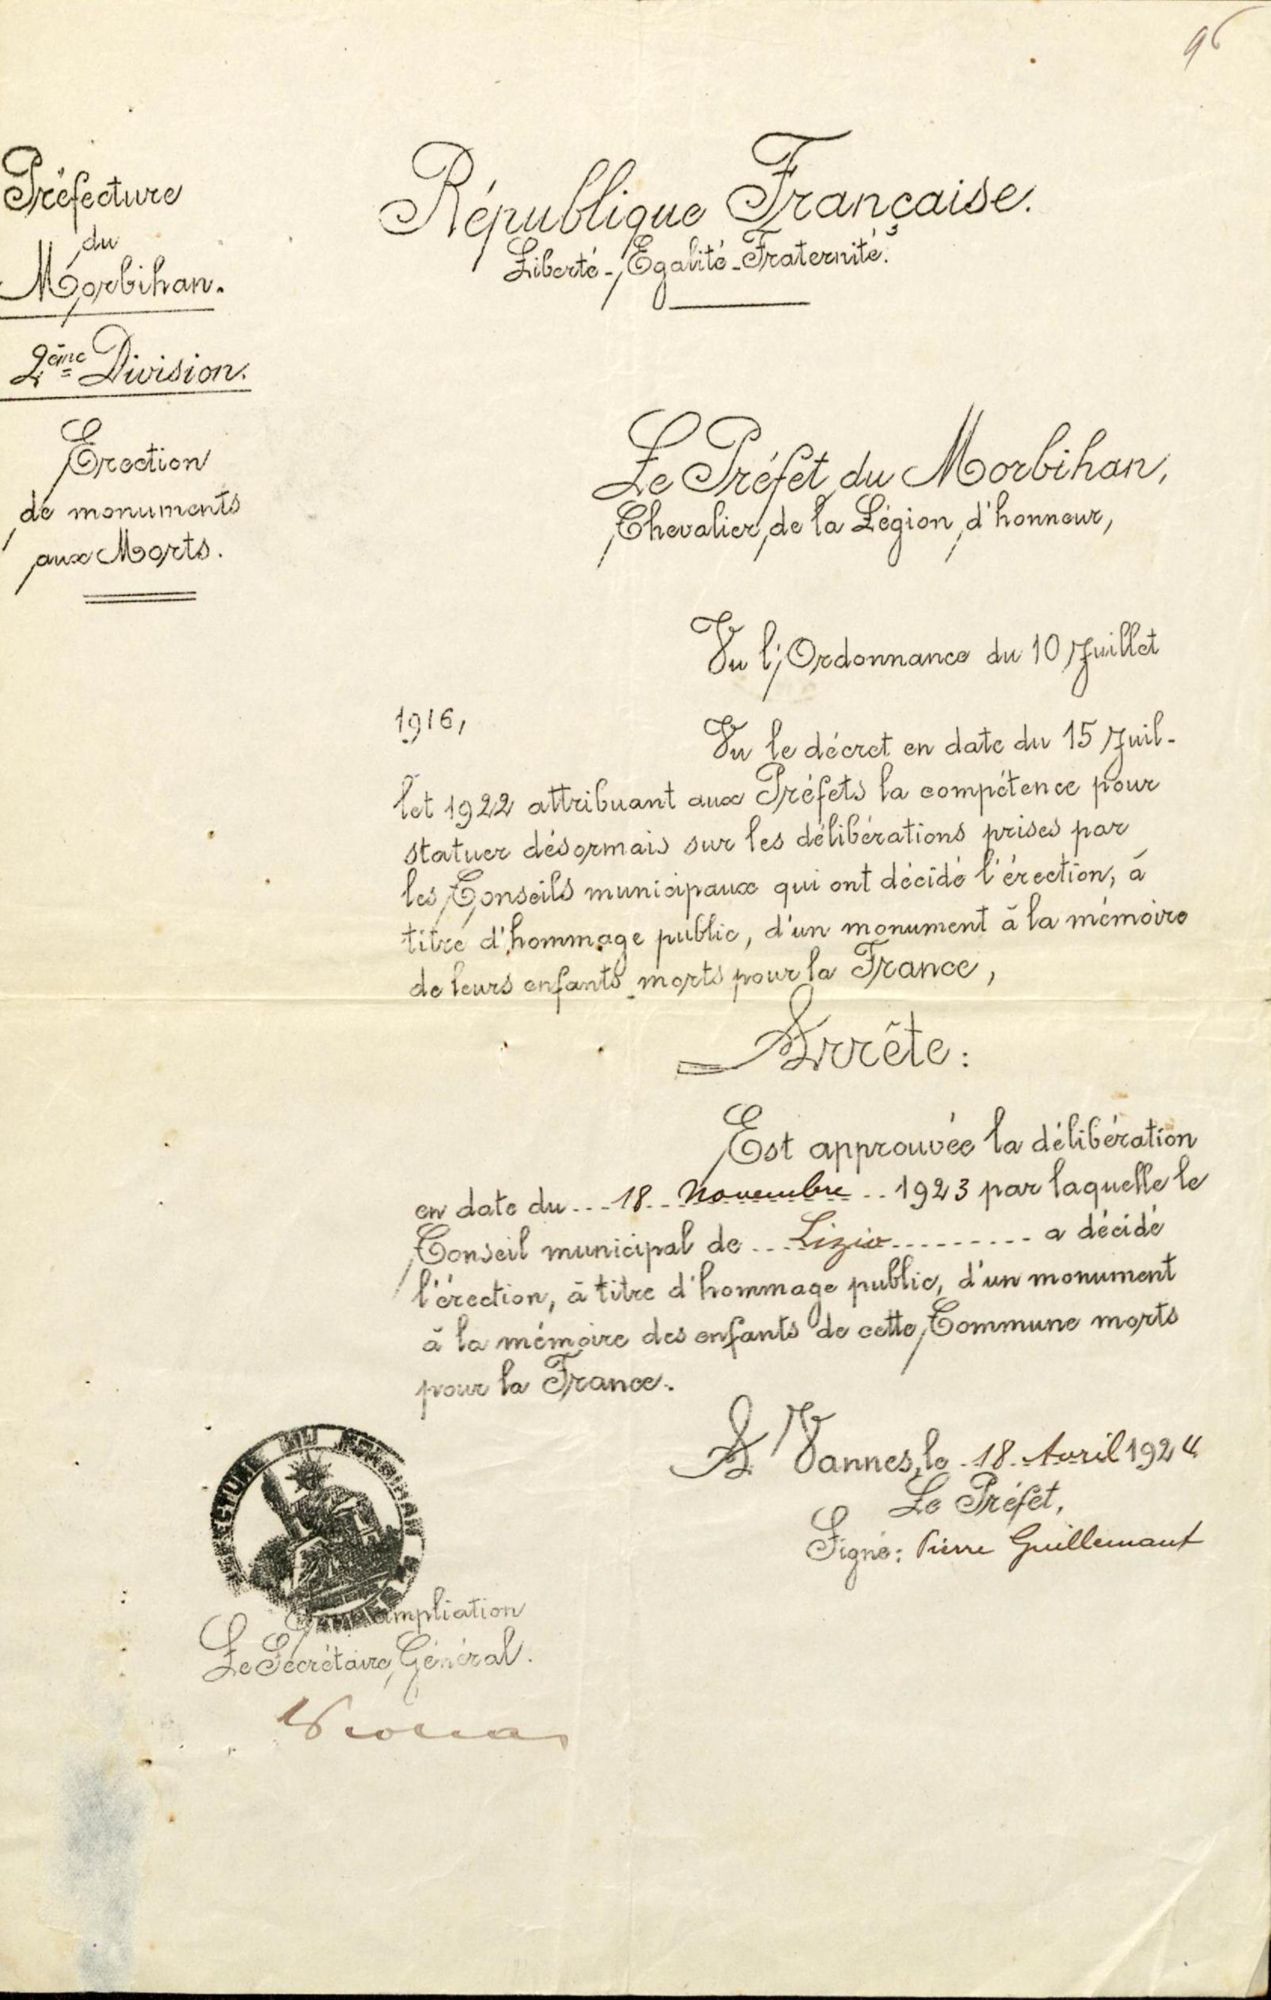 96
Préfecture
du
Morbihan.
2ème Division.
Erection
de monuments
aux Morts.
République Française.
Liberté - Egalité - Fraternité.
Le Préfet du Morbihan,
Chevalier de la Légion d'honneur,
Vu l'Ordonnance du 10 Juillet
1916,
Vu le décret en date du 15 Juil-
let 1922 attribuant aux Préfets la compétence pour
statuer désormais sur les délibérations prises par
les Conseils municipaux qui ont décidé l'érection, à
titre d'hommage public, d'un monument à la mémoire
de leurs enfants morts pour la France,
Arrête :
Est approuvée la délibération
en date du ... 18 Novembre .. 1923 par laquelle le
Conseil municipal de ... Lizio ......... a décidé
l'érection, à titre d'hommage public, d'un monument
à la mémoire des enfants de cette Commune morts
pour la France.
A Vannes, le 18 Avril 1924
Le Préfet,
Signé : Pierre Guillemaut
PREFECTURE DU MORBIHAN
ampliation
Le Secrétaire Général.